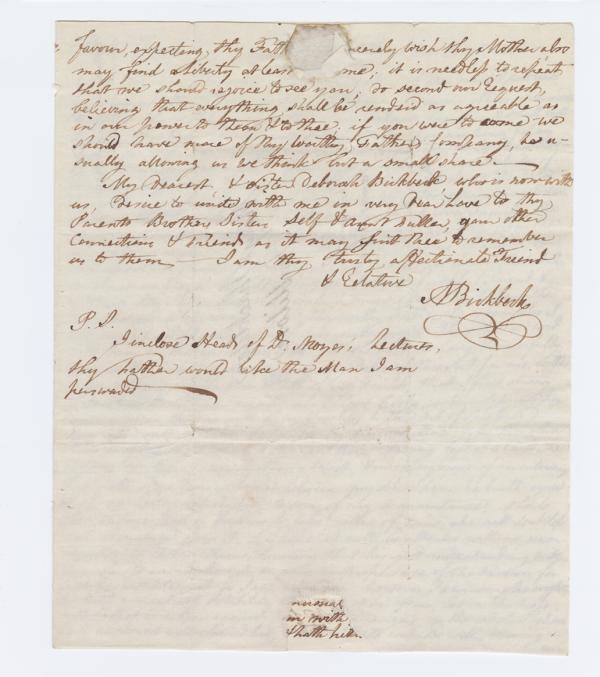 favour, expecting, thy Fath sincerely wish thy Mother also
may find Liberty at least me, it is needless to repeat
that we should rejoice to see you, do second our Request,
believing that everything shall be render'd as agreeable as
in our power to them & to thee; if you were to come we
should have more of thy worthy Fathers Company, he u-
sually allowing us we think but a small share.—
My Dearest & Sister Deborah Birkbeck who is now with
us, Desire to unite with me in very Dear Love to thy
Parents Brother, Sister, Self & Aunt Fuller, your other
Connections & Friends as it may suit thee to remember
us to them — I am thy truly affectionate Friend
& Relative
Birkbeck
P.S.
I inclose Heads of Dr. Moyes's Lectures,
thy Father would like the Man I am
perswaded
with